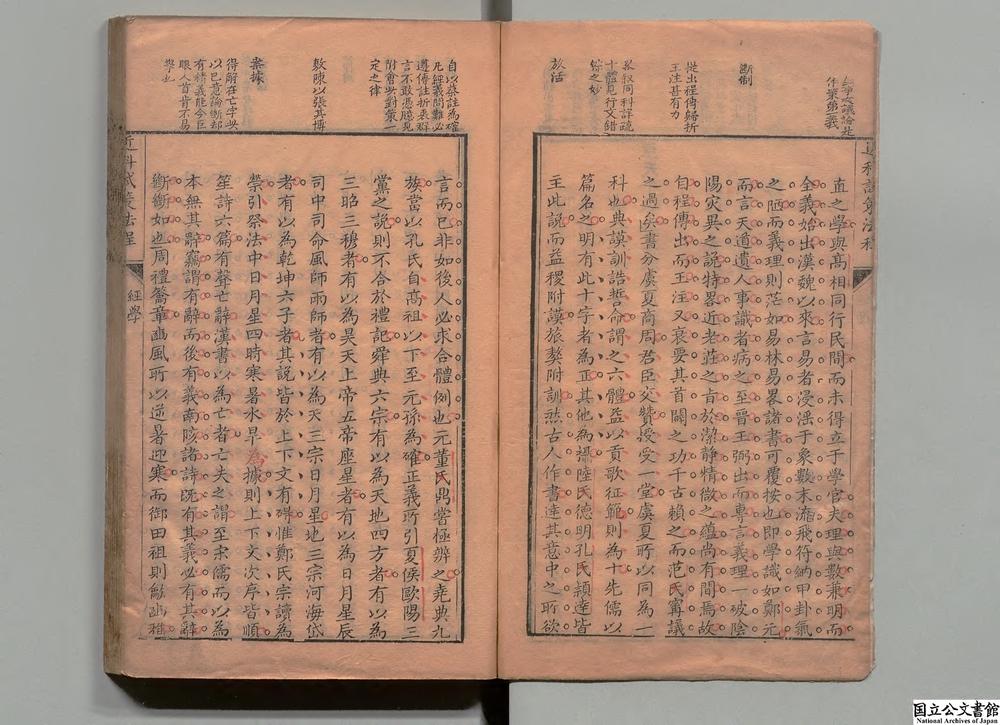 直之學與髙相同行民間而未得立于學官夫理與數兼明而
全義始出漢魏以來言易者浸滛于象數末流飛符納甲卦氣
之陋而義理則茫如易林易畧諸書可覆按也即學識如鄭元
而言天道遺人事識者病之至晉王弼出而專言義理一破陰
陽灾異之說特畧近老莊之㫖於潔静精微之蘊尚有間焉故
自程傳出而王注又衰要其首闢之功千古頼之而范氏寗議
之過矣書分虞夏商周君臣交贊授受一堂虞夏所以同為一
科也典謨訓誥誓命謂之六體益以貢歌征範則為十先儒以
篇名之明有此十字者為正其他為攝陸氏德明孔氏頴達皆
主此說而益稷附謨旅獒附訓然古人作書達其意中之所欲
斷制
從出程傳歸折
王注甚有力
畧叙同科詳疏
十體見行文錯
綜之妙
放活
言而已非如後人必求合體例也元董氏鼎嘗極辨之堯典九
族當以孔氏自髙祖以下至元孫為確正義所引夏侯歐陽三
黨之說則不合於禮記舜典六宗有以為天地四方者有以為
三昭三穆者有以為昊天上帝五帝座星者有以為日月星辰
司中司命風師雨師者有以為天三宗日月星地三宗河海岱
者有以為乾坤六子者其說皆於上下文有碍惟鄭氏宗讀為
禜引祭法中日月星四時寒暑水旱為據則上下文次序皆順
笙詩六篇有聲亡辭漢書以為亡者亡夫之謂至宋儒而以為
本無其辭竊謂有辭而後有義南陔諸詩既有其義必有其辭
斷斷如也周禮籥章豳風所以逆暑迎寒而御田祖則龡豳雅
自以蔡註為確
凡經義問難必
遵傳註折衷群
言不敢憑臆見
附會此對策一
定之律
敷陳以張其博
案據
得解在亡字此
以已意論斷却
有精義能令巨
眼人首肯不易
學也
近科試策法程
經學
国立公文書館
National Archives of Japan